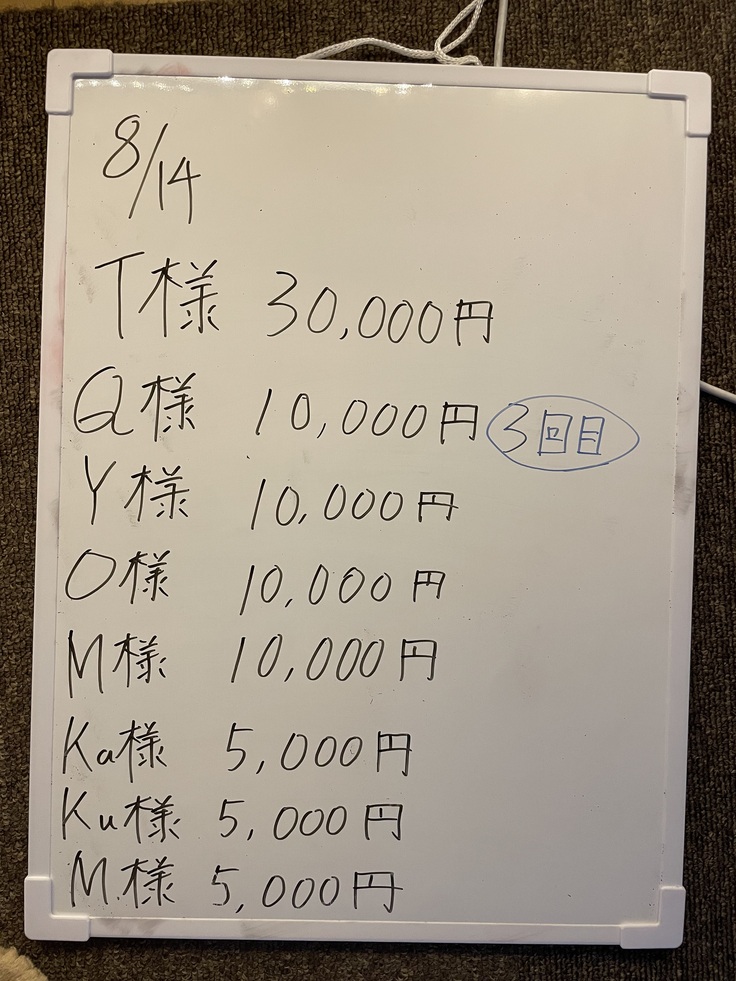 8/14
T様 30,000円
Q様 10,000円 3回目
Y様 10,000円
O様 10,000円
M様 10,000円
Ka様 5,000円
Ku様 5,000円
M.様 5,000円